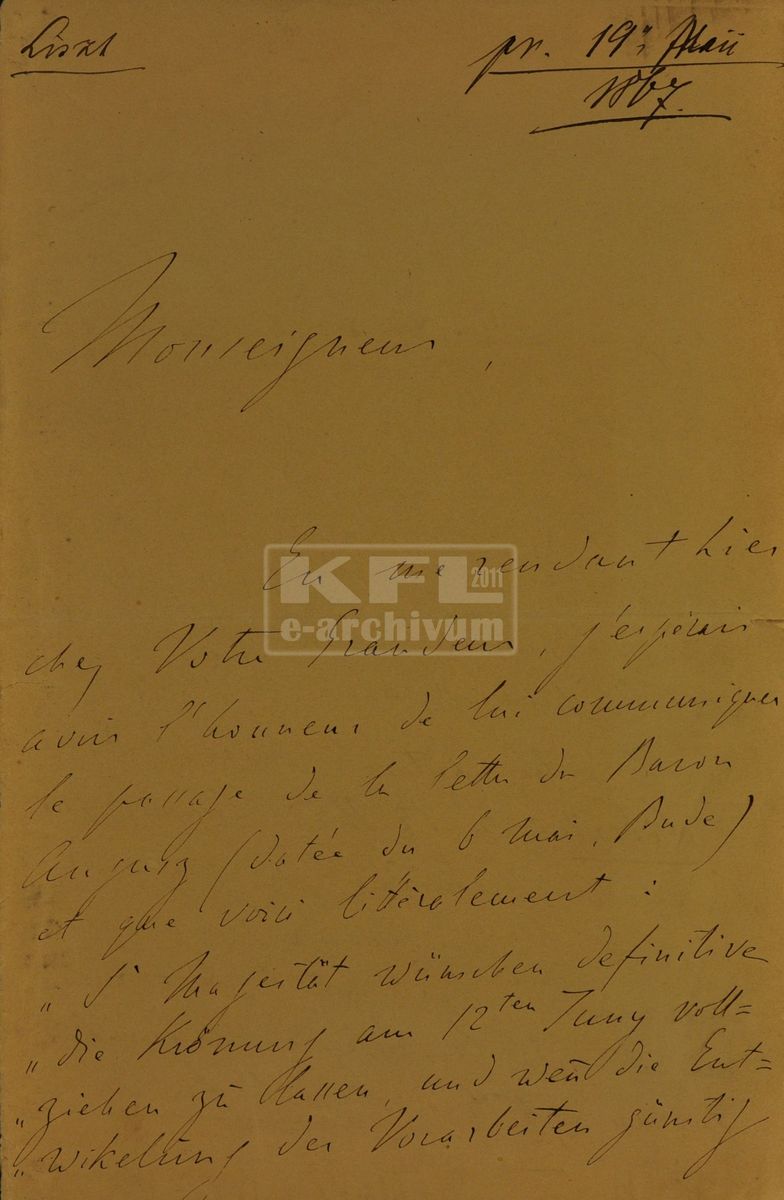 Liszt
pr. 19" Maii
1867.
Monseigneur,
En me rendant hier
KFL 2011
e-archivum
chez Votre Grandeur, j'espérais
avoir l'honneur de lui communiquer
le passage de la lettre du Baron
Augusz (datée du 6 Mai, Bude)
et que voici littéralement:
„S Majestät wünschen definitive
„die Krönung am 12ten Juny voll=
„ziehen zu lassen, und wen̄ die Ent=
„wikelung der Vorarbeiten günstig